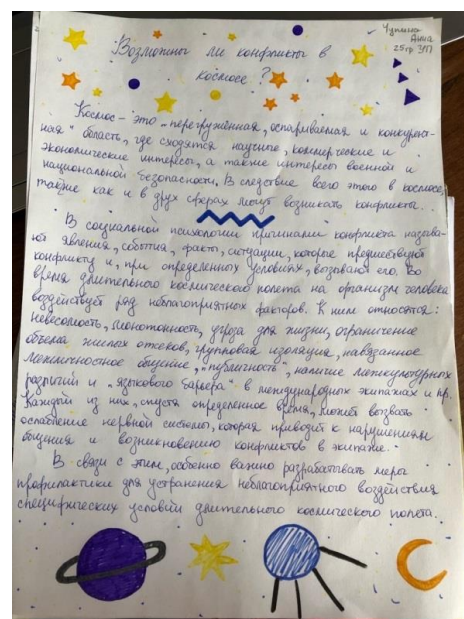 Возможны ли конфликты в
космосе?
Анна
25гр ЗИП
Космос - это „перегруженная, оспариваемая и конкурент-
ная" область, где сходятся научные, коммерческие и
экономические интересы, а также интересы военной и
национальной безопасности. В следствие всего этого в космосе,
также как и в друх сферах могут возникать конфликты.
В социальной психологии причинами конфликта называ-
ют явления, события, факты, ситуации, которые предшествуют
конфликту и, при определенных условиях, возывают его. Во
время длительного космического полета на организм человека
воздействует ряд неблагоприятных факторов. К ним относятся:
невесомость, монотонность, угроза для жизни, ограничение
объема жилых отсеков, групповая изоляция, навязанное
межличностное общение, „публичность", наличие межкультурных
различий и „языкового барьера" в международных экипажах и пр.
Каждый из них, спустя определенное время, может возвать
ослабление нервной системы, которая приводит к нарушениям
общения и возникновению конфликтов в экипаже.
В связи с этим, особенно важно разрабатывать меры
профилактики для устранения неблагоприятного воздействия
специфических условий длительного космического полета.